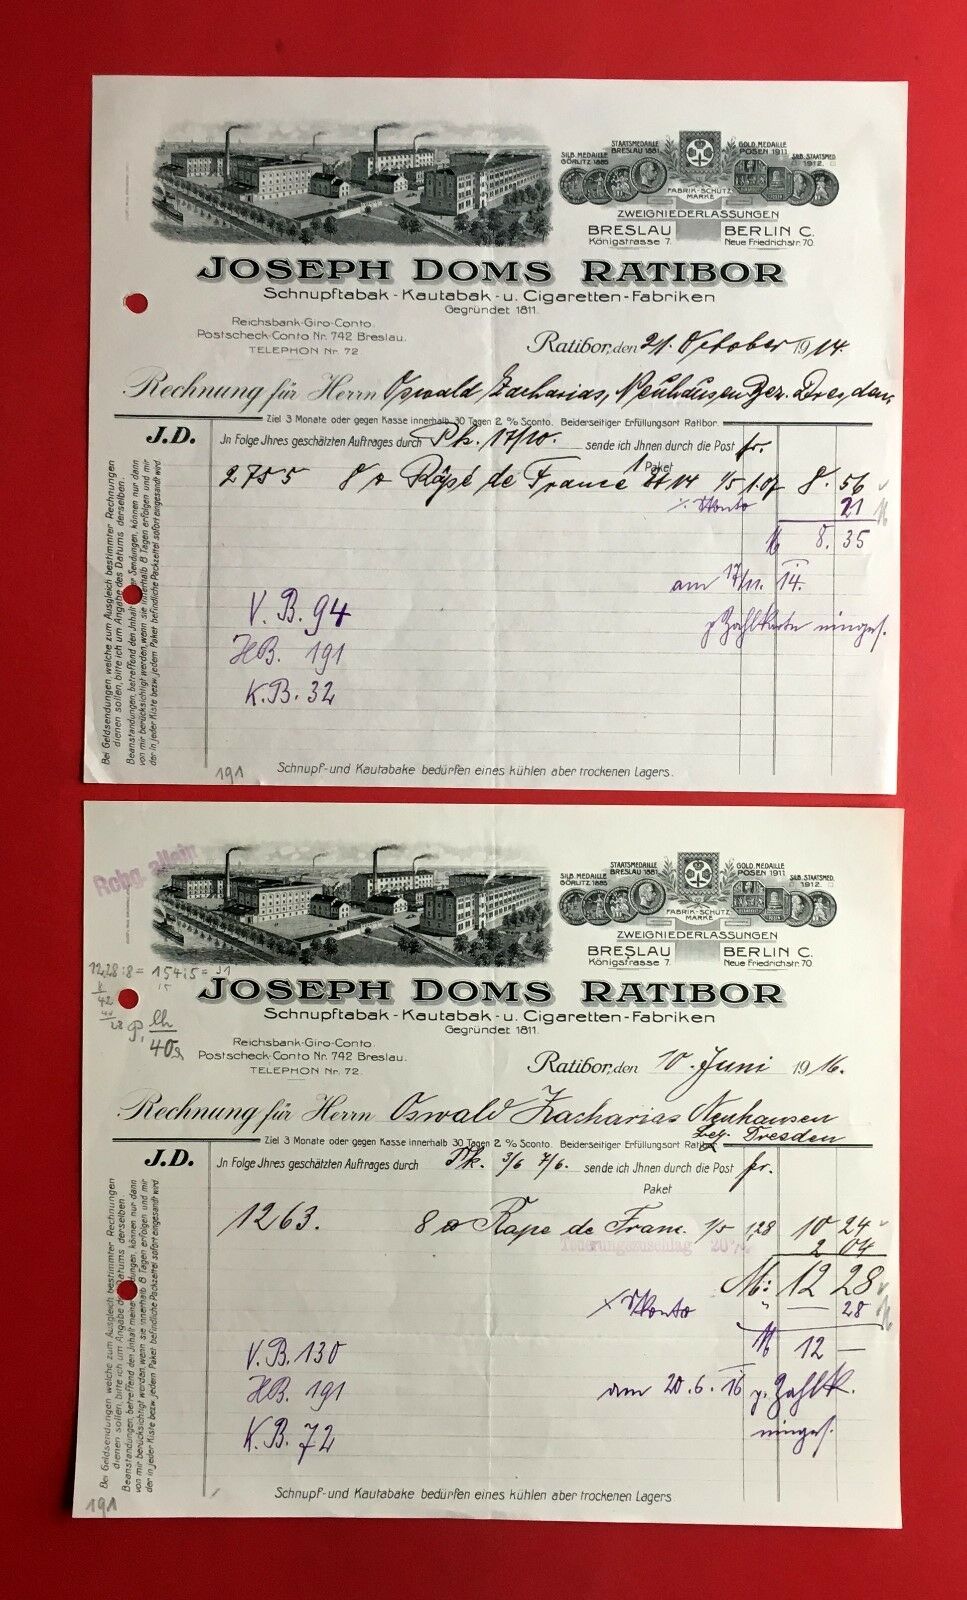 SILB. MEDAILLE
GÖRLITZ 1885
STAATSMEDAILLE
BRESLAU 1881
GOLD. MEDAILLE
POSEN 1911
SILB. STAATSMED.
1912.
FABRIK-SCHUTZ
MARKE
ZWEIGNIEDERLASSUNGEN
BRESLAU
Königstrasse 7.
BERLIN C.
Neue Friedrichstr. 70.
JOSEPH DOMS RATIBOR
Schnupftabak-Kautabak-u. Cigaretten-Fabriken
Gegründet 1811.
Reichsbank-Giro-Conto.
Postscheck-Conto Nr. 742 Breslau.
TELEPHON Nr. 72
Ratibor, den 21. October 1914.
Rechnung für Herrn Oswald Zacharias, Neuhausen Bez. Dresden.
Ziel 3 Monate oder gegen Kasse innerhalb 30 Tagen 2 % Sconto. Beiderseitiger Erfüllungsort Ratibor.
J.D.
Jn Folge Jhres geschätzten Auftrages durch Pk. 17/10. sende ich Jhnen durch die Post fr.
1 Paket
2755 8 Râpé de France 1/5 1.07 8.56
Skonto 21
M 8.35
am 17/11. 14.
p Zahlkarte einges.
V.B. 94
HB. 191
K.B. 32
Bei Geldsendungen welche zum Ausgleich bestimmter Rechnungen
dienen sollen, bitte ich um Angabe des Datums derselben.
Beanstandungen, betreffend den Inhalt Sendungen, können nur dann
von mir berücksichtigt werden, wenn sie innerhalb 8 Tagen erfolgen und mir
der in jeder Kiste bezw. jedem Paket befindliche Packzettel sofort eingesandt wird
191
Schnupf- und Kautabake bedürfen eines kühlen aber trockenen Lagers.
SILB. MEDAILLE
GÖRLITZ 1885
STAATSMEDAILLE
BRESLAU 1881.
GOLD. MEDAILLE
POSEN 1911
SILB. STAATSMED.
1912.
FABRIK-SCHUTZ
MARKE
ZWEIGNIEDERLASSUNGEN
BRESLAU
Königstrasse 7.
BERLIN C.
Neue Friedrichstr. 70.
12,28:8= 154:5= 31
JOSEPH DOMS RATIBOR
Schnupftabak-Kautabak-u. Cigaretten-Fabriken
Gegründet 1811.
40
Reichsbank-Giro-Conto.
Postscheck-Conto Nr. 742 Breslau.
TELEPHON Nr. 72.
Ratibor, den 10. Juni 1916.
Rechnung für Herrn Oswald Zacharias Neuhausen
bez. Dresden
Ziel 3 Monate oder gegen Kasse innerhalb 30 Tagen 2 % Sconto. Beiderseitiger Erfüllungsort Ratibor
J.D.
Jn Folge Jhres geschätzten Auftrages durch Pk. 3/6 7/6. sende ich Jhnen durch die Post fr.
Paket
1263. 8 Rape de Franc. 1/5 1,28 10 24
Teuerungszuschlag 20% 2 04
M: 12 28
Skonto " 28
M 12 —
am 20.6.16 p. Zahlk.
einges.
V.B. 130
HB. 191
K.B. 72
Bei Geldsendungen welche zum Ausgleich bestimmter Rechnungen
dienen sollen, bitte ich um Angabe des Datums derselben.
Beanstandungen, betreffend den Inhalt meiner Sendungen, können nur dann
von mir berücksichtigt werden, wenn sie innerhalb 8 Tagen erfolgen und mir
der in jeder Kiste bezw. jedem Paket befindliche Packzettel sofort eingesandt wird
191
Schnupf- und Kautabake bedürfen eines kühlen aber trockenen Lagers.